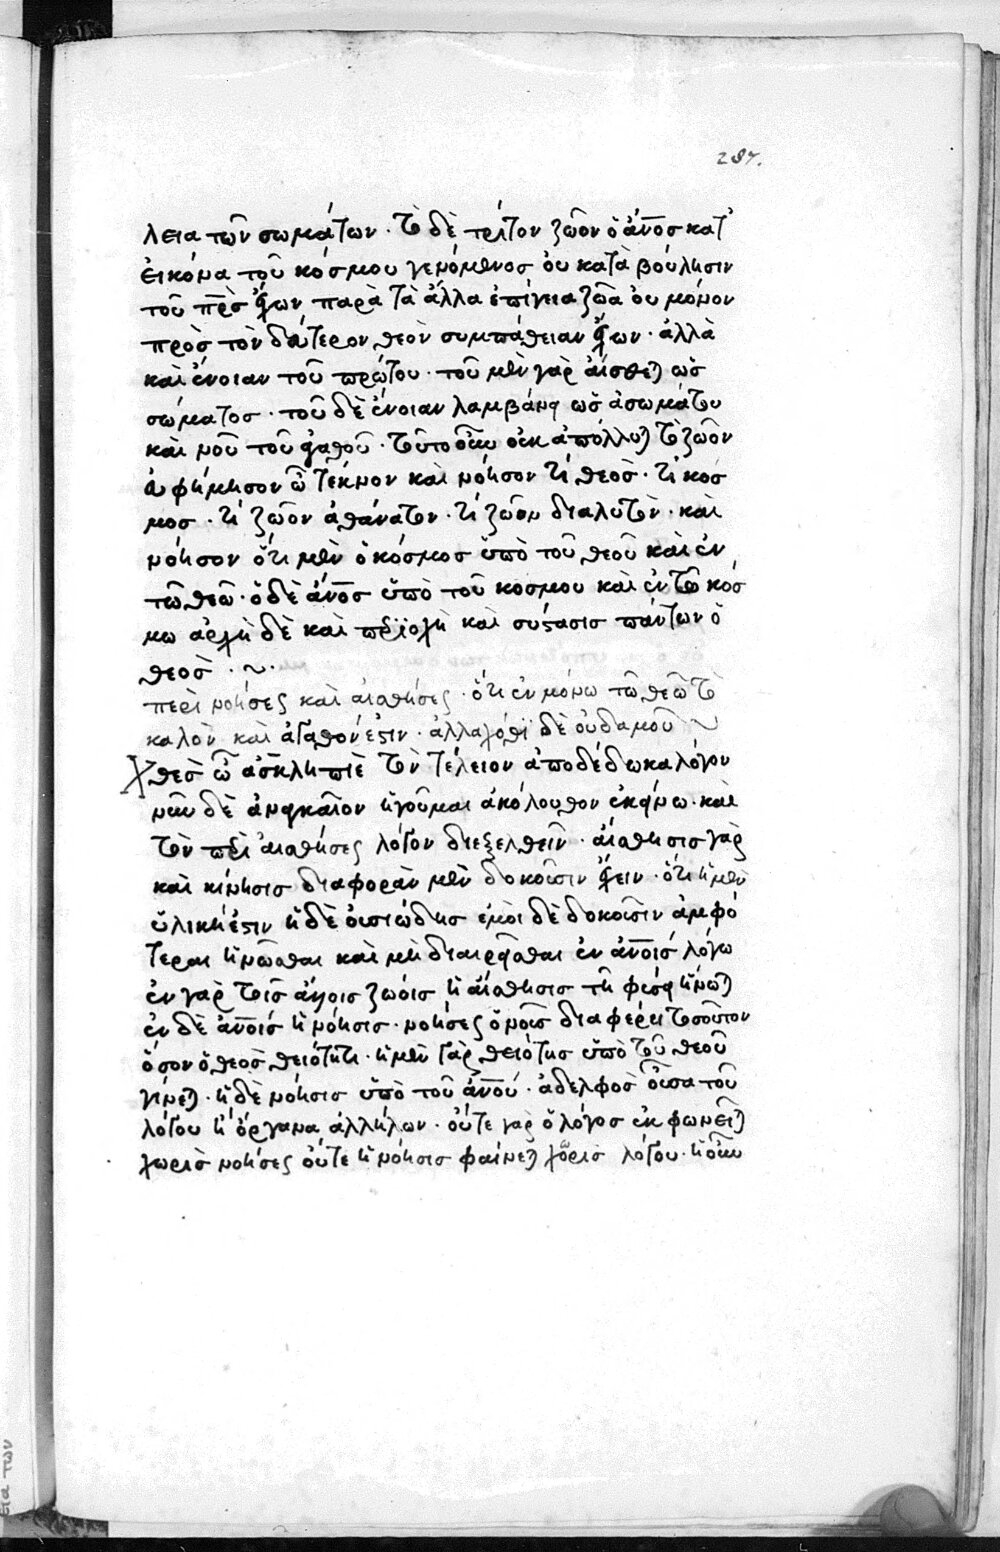 287.
λεια τῶν σωμάτων · τὸ δὲ τρίτον ζῶον ὁ ἄνος κατ'
εἰκόνα τοῦ κόσμου γενόμενος οὐ κατὰ βούλησιν
τοῦ πρς ἔχων παρὰ τὰ ἄλλα ἐπίγεια ζῶα οὐ μόνον
πρὸς τὸν δεύτερον θεὸν συμπάθειαν ἔχων · ἀλλὰ
καὶ ἔνοιαν τοῦ πρώτου · τοῦ μὲν γὰρ αἴσθεται ὡς
σώματος · τοῦ δὲ ἔνοιαν λαμβάνει ὡς ἀσωμάτου
καὶ νοῦ τοῦ ἀγαθοῦ · τοῦτο οὖν οὐκ ἀπόλλυται τὸ ζῶον
εὐφήμησον ὦ τέκνον καὶ νόησον τί θεὸς · τί κόσ
μος · τί ζῶον ἀθάνατον · τί ζῶον διαλυτὸν · καὶ
νόησον ὅτι μὲν ὁ κόσμος ὑπὸ τοῦ θεοῦ καὶ ἐν
τῶ θεῶ · ὁ δὲ ἄνος ὑπὸ τοῦ κόσμου καὶ ἐν τῶ κόσ
μω ἀρχὴ δὲ καὶ περιοχὴ καὶ σύστασις πάντων ὁ
θεὸς · ~ ·
περὶ νοήσεως καὶ αἰσθήσεως · ὅτι ἐν μόνω τῶ θεῶ τὸ
καλὸν καὶ ἀγαθόν ἐστιν · ἀλλαχόθι δὲ οὐδαμοῦ ~
χθὲς ὦ ἀσκληπιὲ τὸν τέλειον ἀποδέδωκα λόγον
νῦν δὲ ἀναγκαῖον ἡγοῦμαι ἀκόλουθον ἐκείνω · καὶ
τὸν περὶ αἰσθήσεως λόγον διεξελθεῖν · αἴσθησις γὰρ
καὶ κίνησις διαφορὰν μὲν δοκοῦσιν ἔχειν · ὅτι ἡ μὲν
ὑλική ἐστιν ἡ δὲ οὐσιώδης ἐμοὶ δὲ δοκοῦσιν ἀμφό
τεραι ἡνῶσθαι καὶ μὴ διαιρεῖσθαι ἐν ἀνοις λόγω
ἐν γὰρ τοῖς ἄλλοις ζώοις ἡ αἴσθησις τῆ φύσει ἥνωται
ἐν δὲ ἀνοις ἡ νόησις · νοήσεως ὁ νοῦς διαφέρει τοσοῦτον
ὅσον ὁ θεὸς θειότητι · ἡ μὲν γὰρ θειότης ὑπὸ τοῦ θεοῦ
γίνεται · ἡ δὲ νόησις ὑπὸ τοῦ ἀνου · ἀδελφὸς οὖσα τοῦ
λόγου ἢ ὄργανα ἀλλήλων · οὔτε γὰρ ὁ λόγος ἐκφωνεῖται
χωρὶς νοήσεως οὔτε ἡ νόησις φαίνεται χωρὶς λόγου · ἡ οὖν